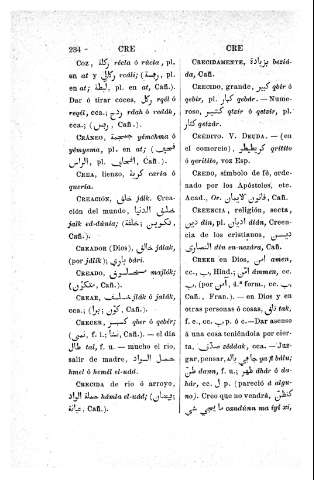 234 - CRE
CRE
Coz, ركلة rácla ó rácia, pl.
en at y ركالي rcáli; (رفسة, pl.
en at; لبطة, pl. en at, Cañ.).
Dar ó tirar coces, ركل rqél ó
reqél, cca.; ردح rdách ó radáh,
cca.; (رفس, Cañ.).
CRÁNEO, جمجمة yémchma ó
yémyema, pl. en at.; (قحف
الراس, pl. قحاف, Cañ.).
CREA, lienzo, كرية cería ó
quería.
CREACIÓN, خلق jálk. Crea-
ción del mundo, خلق الدنيا
jalk ed-dúnia; (خلقة, تكوين,
Cañ.).
CREADOR (Dios), خالق jálak,
(por jálik); باري bári.
CREADO, مخلوق majlók;
(متكون, Cañ.).
CREAR, خلف jlák ó jalák,
cca.; (برا, كون, Cañ.).
CRECER, كبر qber ó qebér;
(نمى, f. i.; نشا, Cañ.). — el dia
طال tal, f. u. — mucho el rio,
salir de madre, حمل الواد
hmel ó hemél el-uád.
CRECIDA de rio ó arroyo,
حملة الواد hámla el-uád; (فيضان,
عبابة, Cañ.).
CRECIDAMENTE, بزيادة beziá-
da, Cañ.
CRECIDO, grande, كبير qbir ó
qebír, pl. كبار qebar. — Nume-
roso, كثير qtzir ó qetzír, pl.
كثار qetzár.
CRÉDITO. V. DEUDA. — (en
el comercio), كريطيطو qritíto
ó qeritíto, voz Esp.
CREDO, símbolo de fé, orde-
nado por los Apóstoles, etc.
Acad., Or. قانون لايمان, Cañ.
CREENCIA, religion, secta,
دين din, pl. اديان adián. Creen-
cia de los cristianos, دين
النصارى din en-nazára, Cañ.
CREER en Dios, امن amen,
cc. ب, Hind.; امن ámmen, cc.
ب, (por امن, 4.ª form., cc. ب,
Cañ., Fran.). — en Dios y en
otras personas ó cosas, تاق tak,
f. e., cc. ب p. ó c. — Dar asenso
á una cosa teniéndola por cier-
ta, صدق zóddak, cca. — Juz-
gar, pensar, جا في باله ya fi bálu;
ظن dann, f. u.; ظهر dhár ó da-
hár, cc. ل p. (pareció á algu-
no). Creo que no vendrá, كنظن
ما يجي شي canḍúnn ma iyí xi,